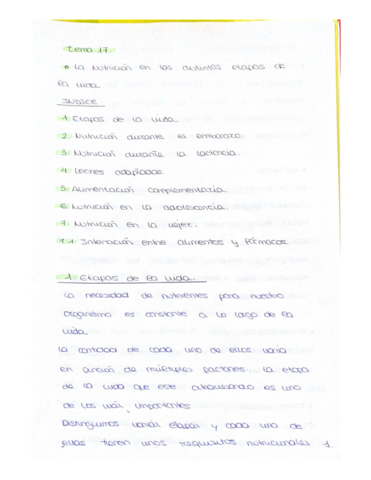 Tema 17:
La Nutrición en las distintas etapas de
la vida.
INDICE
1. Etapas de la vida.
2. Nutrición durante el embarazo.
3. Nutrición durante la lactancia.
4. Leches adaptadas.
5. Alimentación complementaria.
6. Nutrición en la adolescencia.
7. Nutrición en la vejez.
7.1. Interacción entre alimentos y fármacos.
1. Etapas de la vida.
La necesidad de nutrientes para nuestro
organismo es constante a lo largo de la
vida.
La cantidad de cada uno de ellos varía
en función de múltiples factores... la etapa
de la vida que esté atravesando es uno
de los más importantes
Distinguimos varias etapas y cada una de
ellas tienen unos requisitos nutricionales 1.